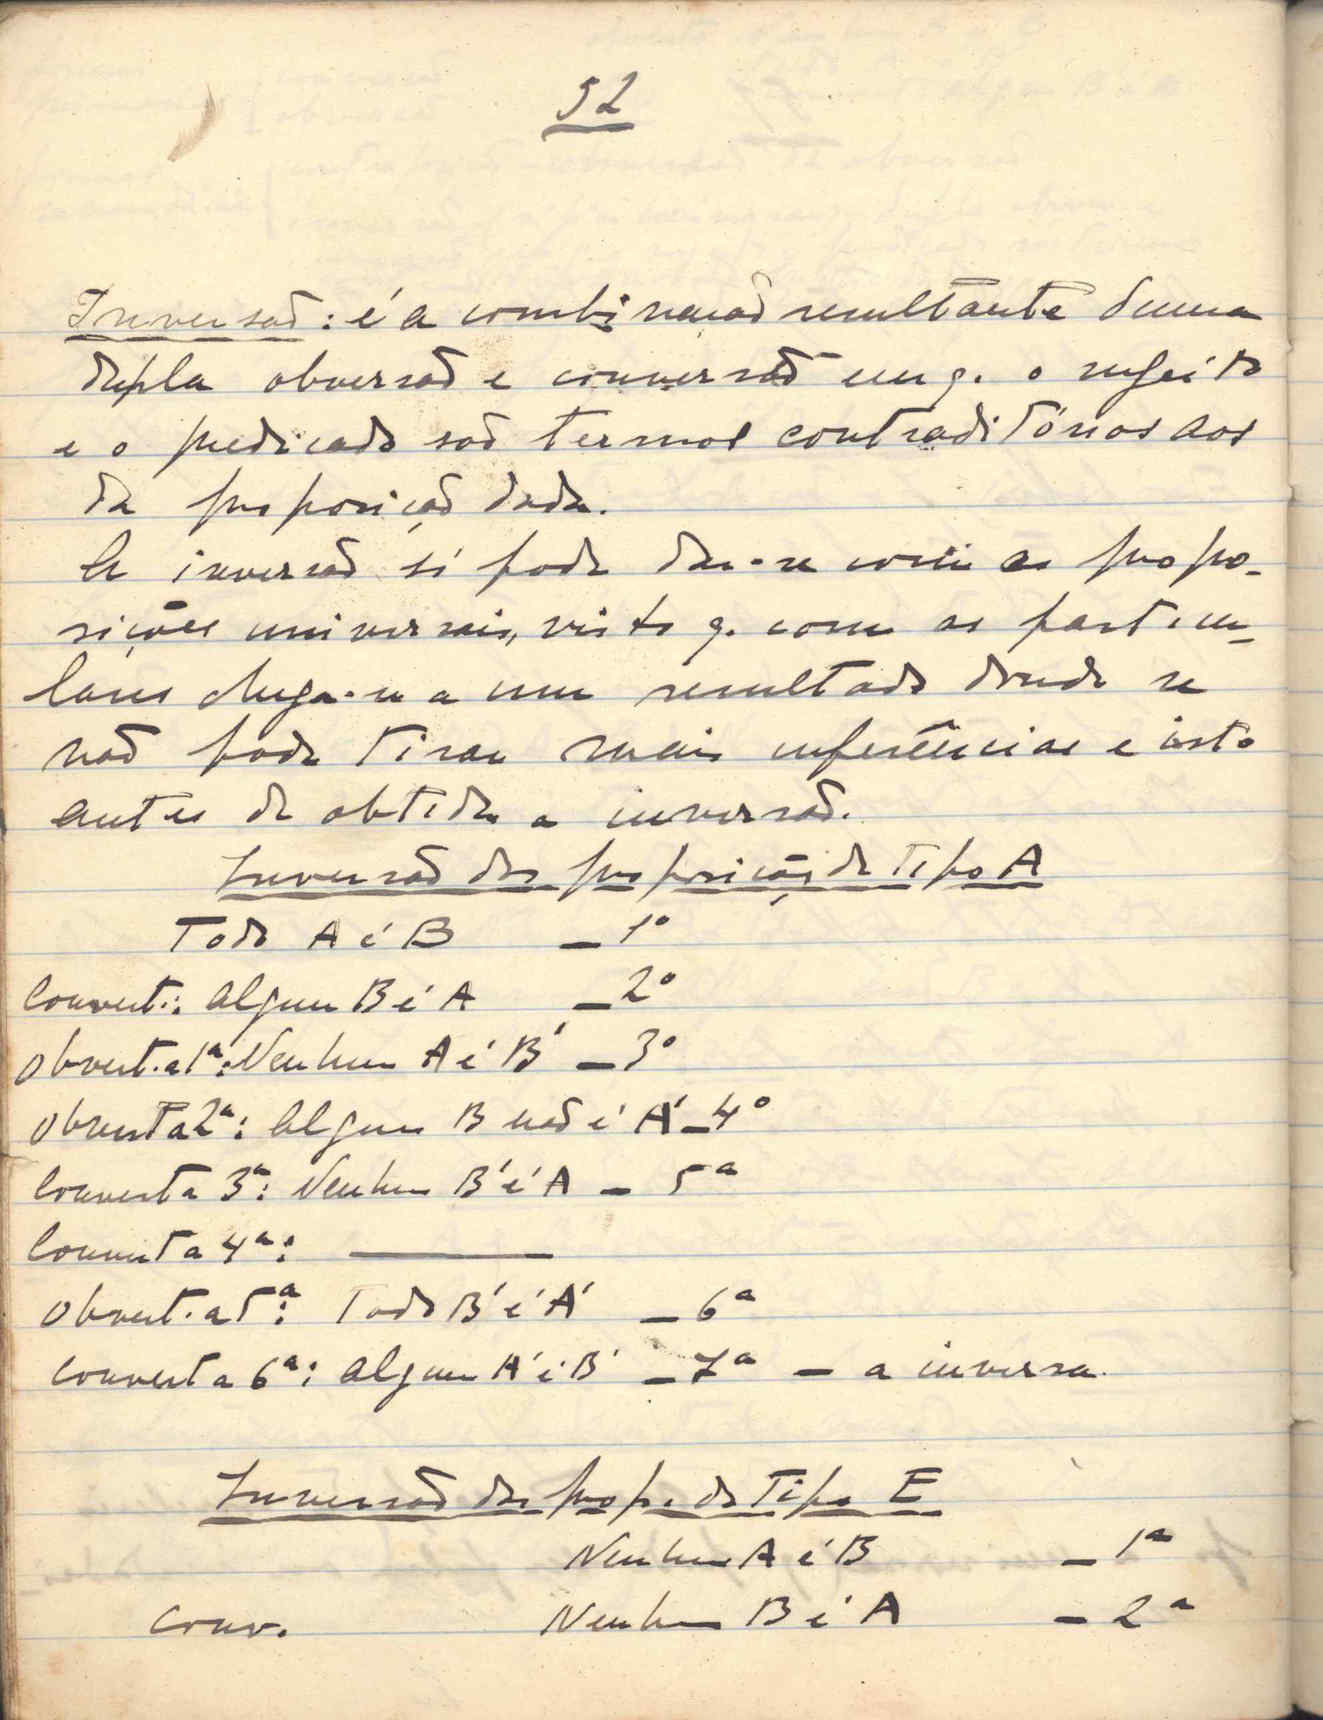 52
Inversão: é a combinação resultante duma
dupla obversão e conversão em q. o sujeito
e o predicado são termos contraditórios aos
da proposição dada.
A inversão só pode dar-se com as propo-
sições universais, visto q. com as particu-
lares chega-se a um resultado donde se
não pode tirar mais inferências e isto
antes de obtida a inversão.
Inversão das proposições de tipo A
Todo A é B — 1º
Convert.: Algum B é A — 2º
Obvert. a 1ª: Nenhum A é B' — 3º
Obvert a 2ª: Algum B não é A' — 4º
Convert a 3ª: Nenhum B' é A — 5ª
Convert a 4ª: ———
Obvert. a 5ª: Todo B' é A' — 6ª
Convert a 6ª: Algum A' é B' — 7ª — a inversa.
Inversão das prop. do Tipo E
Nenhum A é B — 1ª
Conv. Nenhum B é A — 2ª